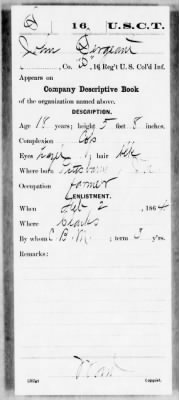 S 16 U.S.C.T.
John Sergeant
, Co. D, 16 Reg't U.S. Col'd Inf.
Appears on
Company Descriptive Book
of the organization named above.
DESCRIPTION.
Age 18 years; height 5 feet 8 inches.
Complexion
Eyes ; hair Blk
Where born
Occupation Farmer
ENLISTMENT.
When Feb 2, 1864
Where
By whom C. B. M. ; term 3 y'rs.
Remarks:
Copyist.